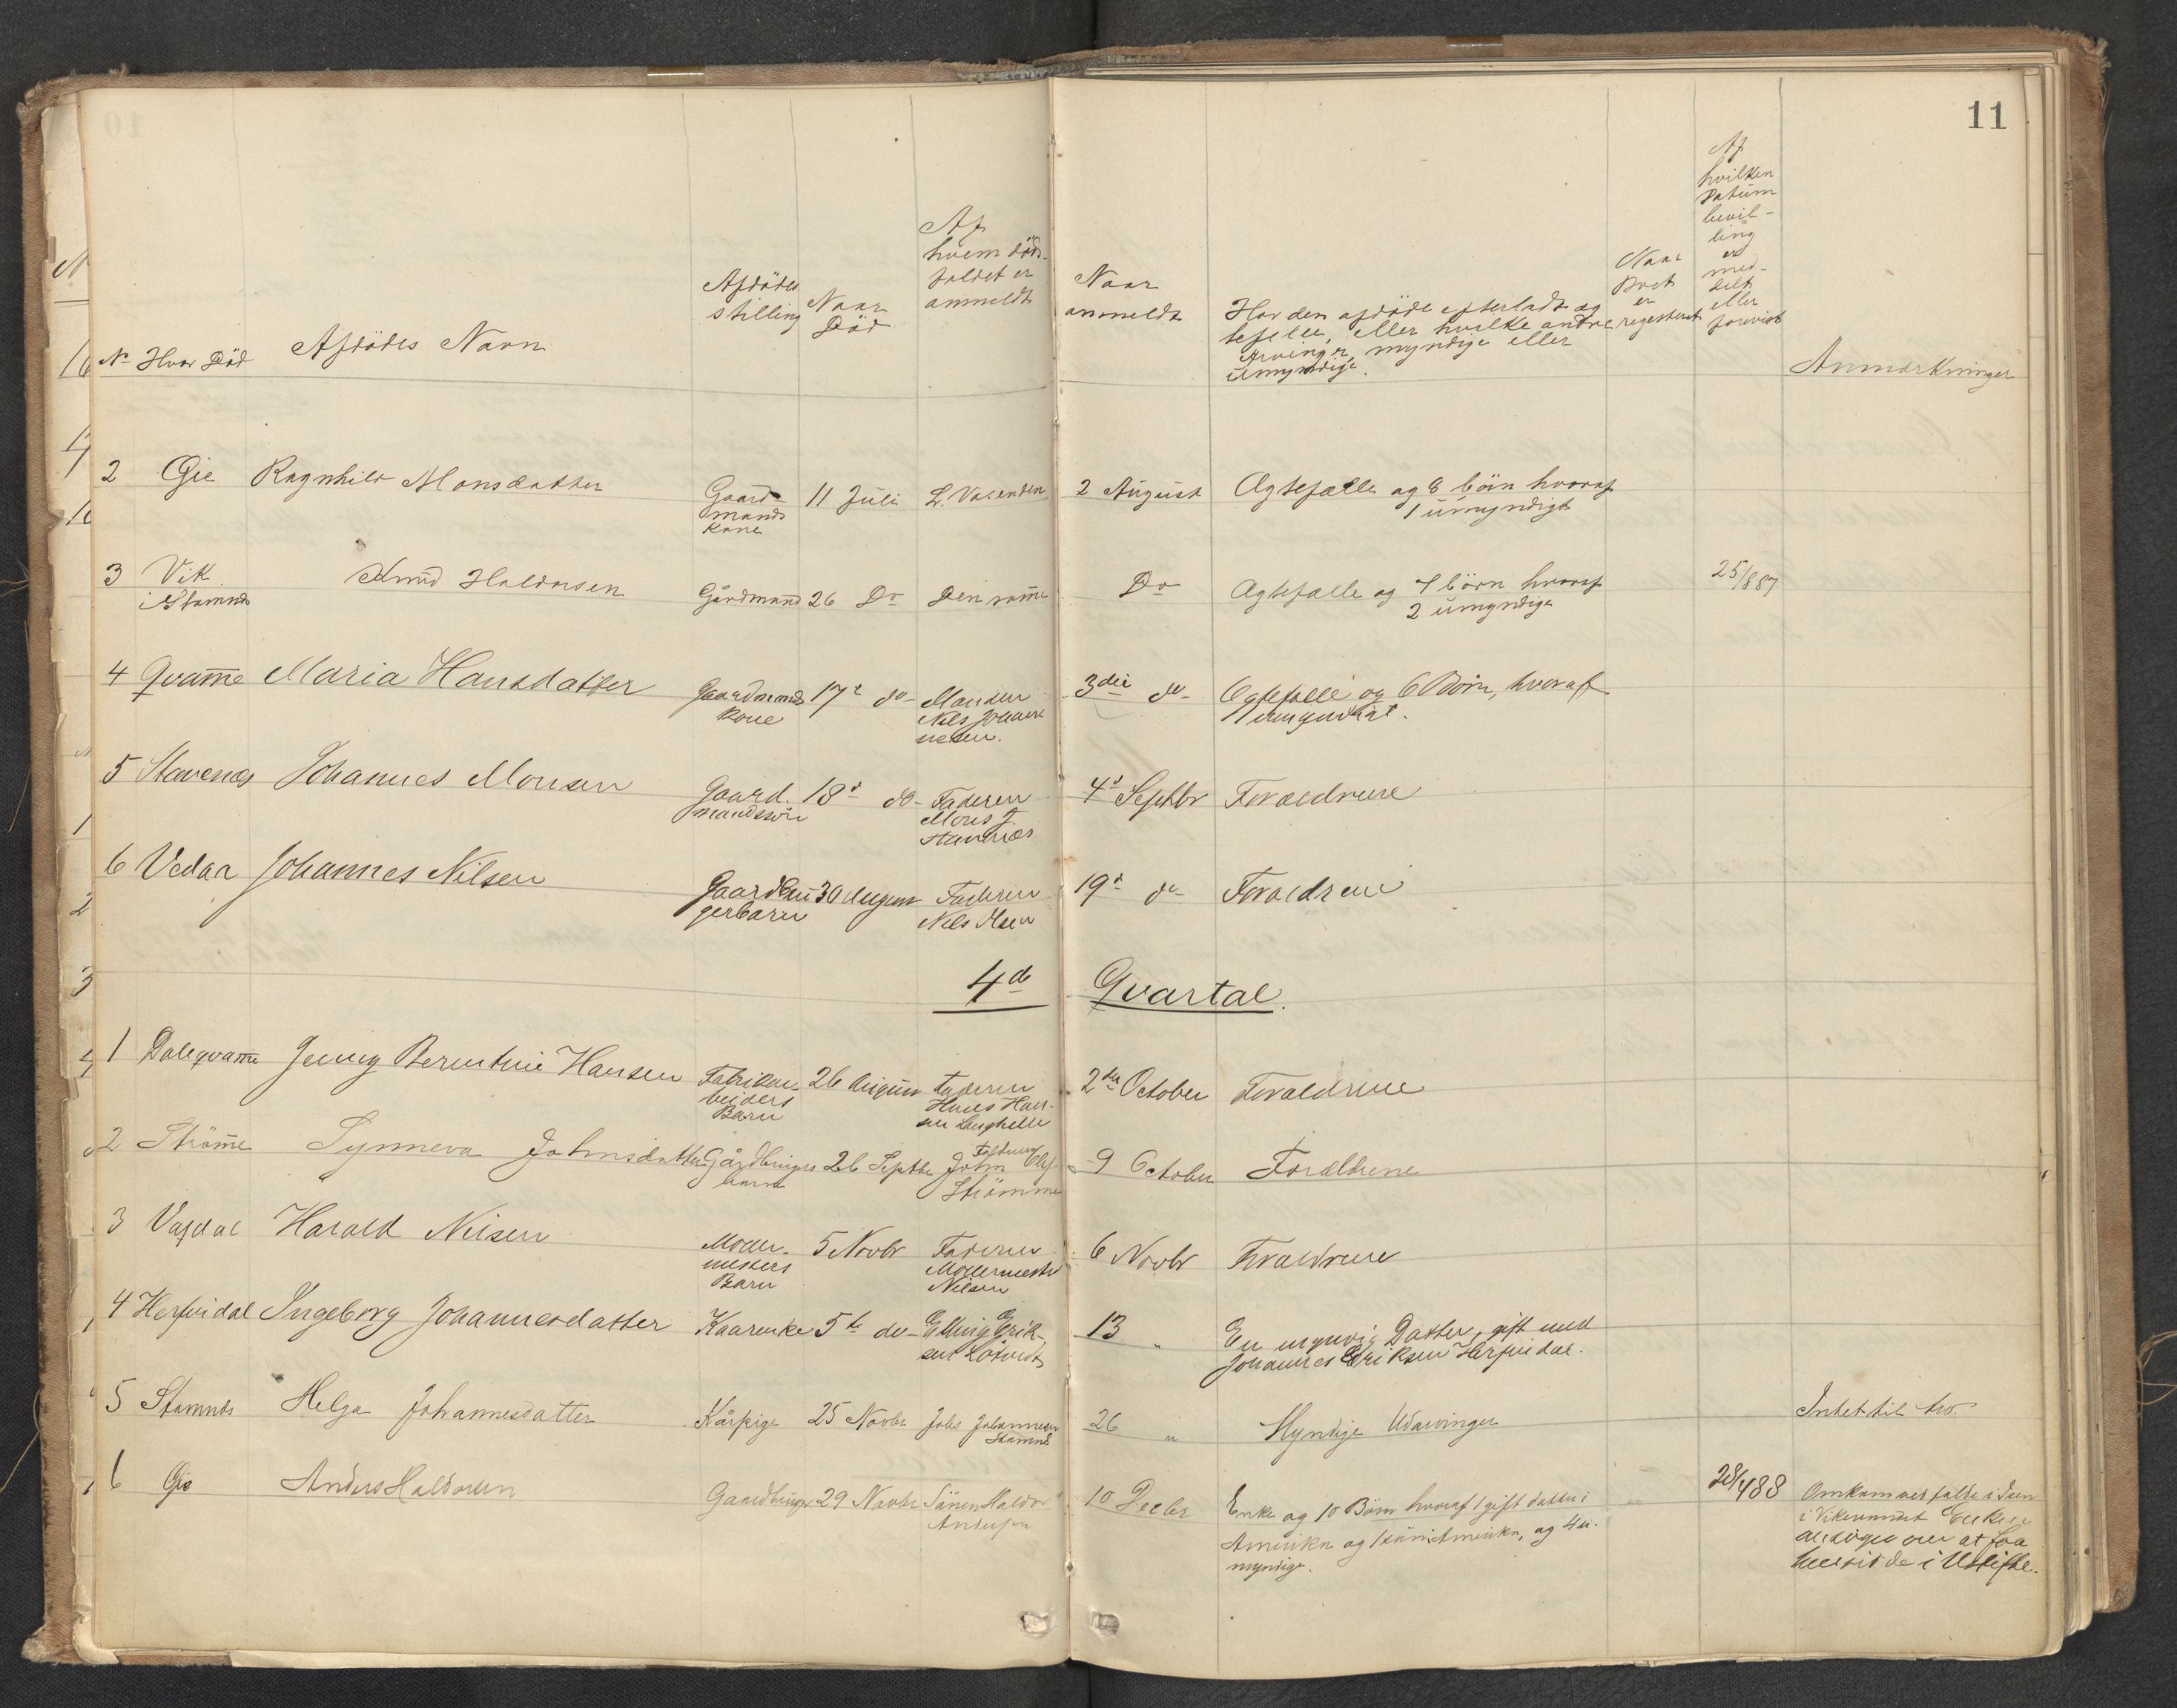 11
No Hvor Død
Afdødes Navn
Afdødes
stilling
Naar
Død
Af
hvem døds-
faldet er
anmeldt
Naar
anmeldt
Har den afdøde efterladt æg
tefelle, eller hvilke andre
Arvinger, myndige eller
umyndige.
Naar
Boet
er
regestreret
Af
hvilken
Datum
bevil-
ling
er
med-
delt
eller
forevist
Anmærkninger
2 Gie Ragnhild Monsdatter
Gaard-
mands
kone
11 Juli
L. Vasenden
2 August
Ægtefælle og 8 börn hvoraf
1 umyndigt
3 Vik
i Stamnes
Knud Haldorsen
Gårdmand
26 Do
Den samme
Do
Ægtefælle og 7 börn hvoraf
2 umyndige
25/8 87
4 Qvamme Maria Hansdatter
Gaardmands
kone
17de do
Manden
Nils Johan
nesen.
3die do
Egtefælle og 6 Börn, hvoraf
1 umyndigt.
5 Stavenes Johannes Monsen
Gaard.
mandssön
18d do
Faderen
Mons J.
Stavenes
4d Septbr
Forældrene
6 Vedaa Johannes Nilsen
Gaardbru
gerbarn
30 August
Faderen
Nils
19d do
Forældrene
4de Qvartal.
1 Daleqvamme Jenny Berentine Hansen
Fabrikar-
beiders
Barn
26 August
Faderen
Hans Han-
sen
2den October
Forældrene
2 Strömme Synneva Johnsdatter
Gårdbrugers
barn
26 Septbr
Faderen
John Ols.
Strömme
9 October
Forældrene
3 Vaxdal Harald Nilsen
Möller-
mesters
Barn
5 Novbr
Faderen
Möllermester
Nilsen
6 Novbr
Forældrene
4 Herfindal Ingeborg Johannesdatter
Kaarenke
5te do
Elling Erik-
sen
13 "
En myndig Datter, gift med
Johannes Eriksen Herfindal.
5 Stamnes Helga Johannesdatter
Kårpige
25 Novbr
Johs Johannesen
Stamnes
26 "
Myndige Udarvinger
Intet til
6 Gie Anders Haldorsen
Gaardbruger
29 Novbr
Sönnen Haldor
Andersen
10 Decbr
Enke og 10 Börn hvoraf 1 gift datter i
Amerika og 1 sön i Amerika, og 4 u-
myndige.
28/4 88
Omkom ved falde i Isen
i Vikevandet Enken
ansöger om at faa
hensidde i Uskiftet.